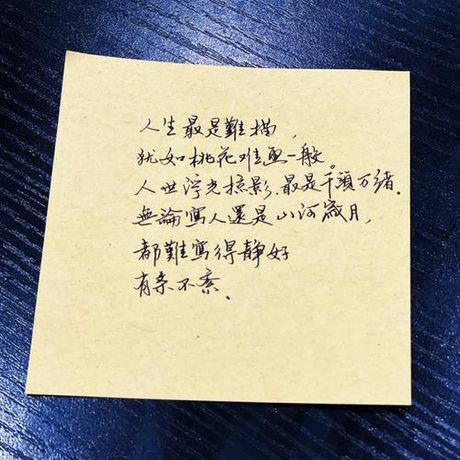 人生最是難描，
犹如桃花难画一般。
人世浮光掠影，最是千頭万緒．
無論寫人還是山河歲月，
都難寫得静好
有条不紊．